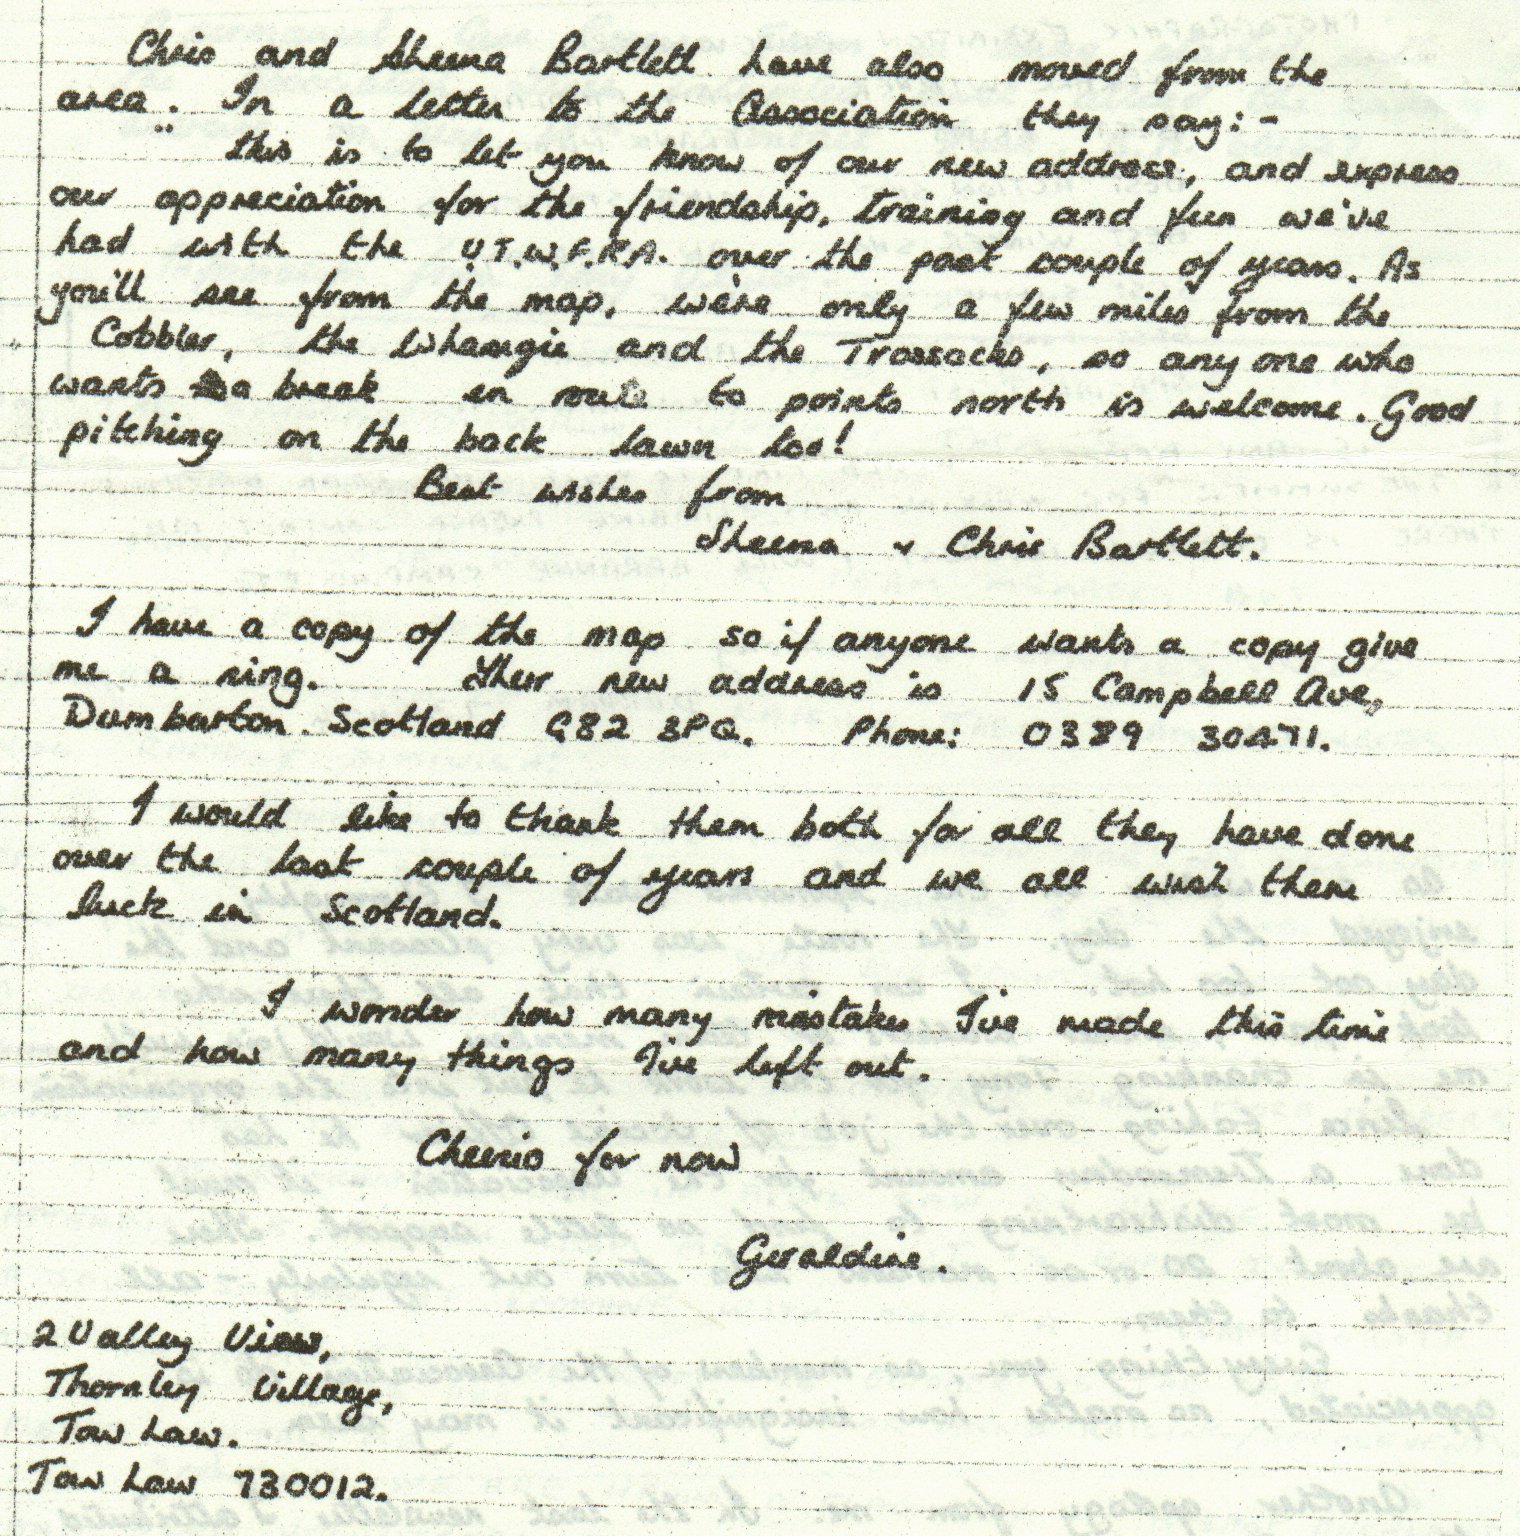 Chris and Sheena Bartlett have also moved from the
area. In a letter to the Association they say:-
" this is to let you know of our new address, and express
our appreciation for the friendship, training and fun we've
had with the U.T.W.F.R.A. over the past couple of years. As
you'll see from the map, we're only a few miles from the
Cobbler, the Whangie and the Trossacks, so anyone who
wants a break en route to points north is welcome. Good
pitching on the back lawn too!
Best wishes from
Sheena & Chris Bartlett.
I have a copy of the map so if anyone wants a copy give
me a ring. Their new address is 15 Campbell Ave,,
Dumbarton. Scotland G82 3PQ. Phone: 0389 30471.
I would like to thank them both for all they have done
over the last couple of years and we all wish them
luck in Scotland.
I wonder how many mistakes I've made this time
and how many things I've left out.
Cheerio for now
Geraldine.
2 Valley View,
Thornley Village,
Tow Law.
Tow Law 730012.